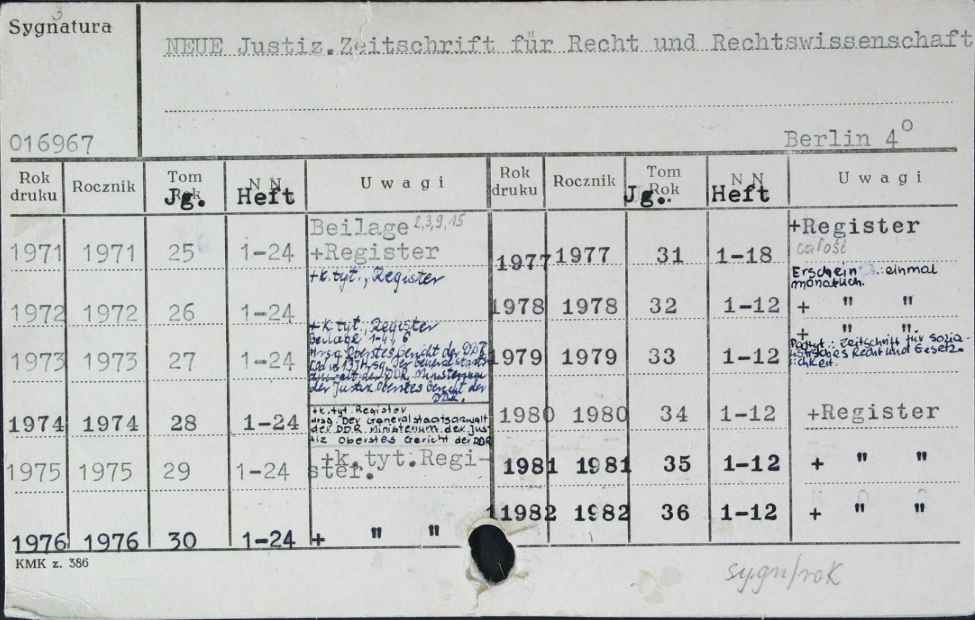 Sygnatura
NEUE Justiz.Zeitschrift für Recht und Rechtswissenschaft
016967
Berlin 4°
Rok druku Rocznik Tom Rok Jg. N N Heft Uwagi Rok druku Rocznik Tom Rok Jg. N N Heft Uwagi
1971 1971 25 1-24 Beilage 2,3,9,15 +Register 1977 1977 31 1-18 +Register całość
1972 1972 26 1-24 +k.tyt., Register 1978 1978 32 1-12 Erschein einmal monatlich. + " "
1973 1973 27 1-24 +k.tyt., Register
Beilage
Oberstes Gericht der DDR
der Justiz Oberstes Gericht der DDR.
1979 1979 33 1-12 + " ".
Zeitschrift für sozia-
listisches Recht und Gesetz-
lichkeit.
1974 1974 28 1-24 +k.tyt. Register
Hrsg. Der Generalstaatsanwalt
der DDR. Ministerium der Jus
tiz Oberstes Gericht der DDR
1980 1980 34 1-12 +Register
1975 1975 29 1-24 +k.tyt.Regi-
ster.
1981 1981 35 1-12 + " "
1976 1976 30 1-24 + " "
11982 1982 36 1-12 + " "
KMK z. 386
sygn/rok